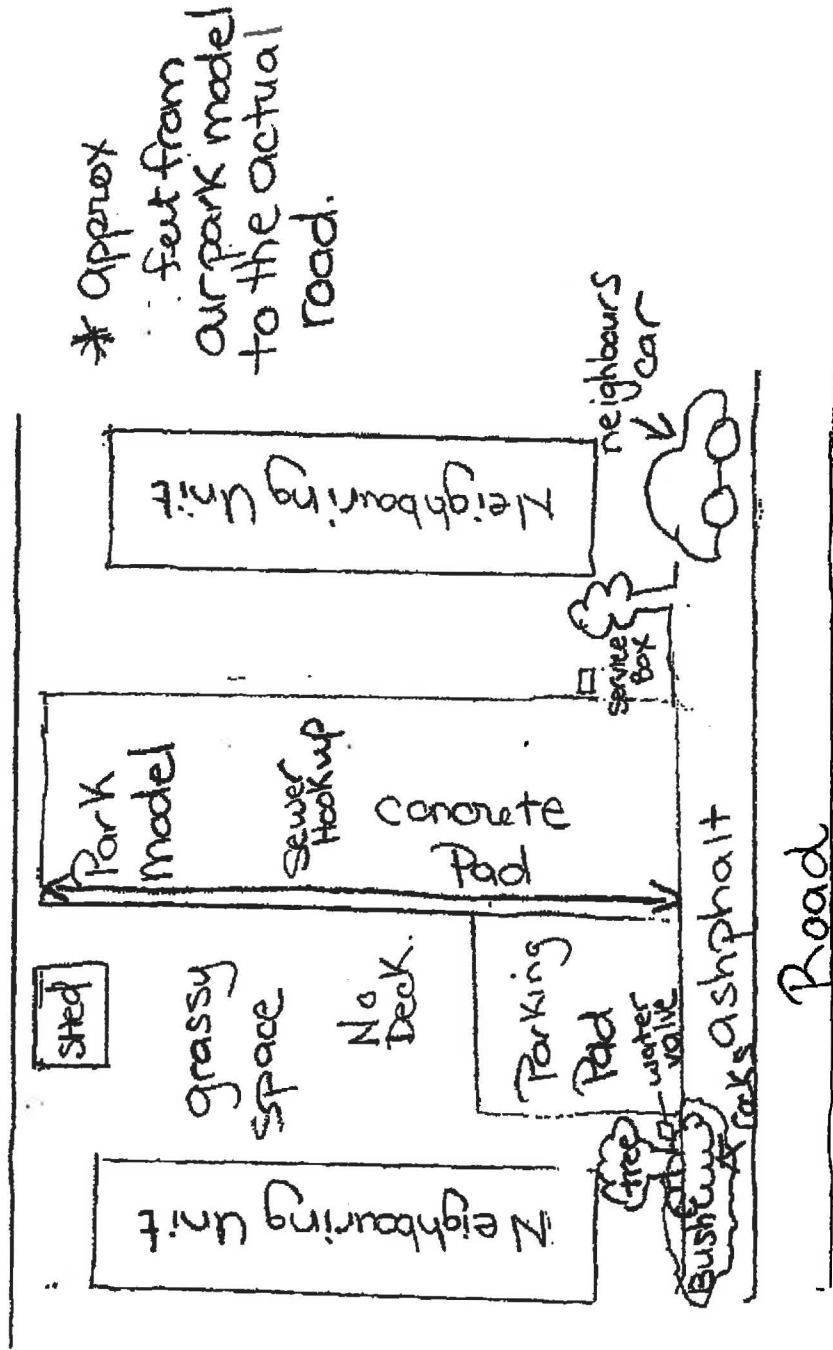 * approx
feet from
our park model
to the actual
road.
Neighbouring Unit
neighbours
car
service
Box
Park
Model
Sewer
Hookup
concrete
Pad
SHed
grassy
space
No
Deck.
Parking
Pad
water
valve
Neighbouring Unit
tree
Bush
rocks
ashphalt
Road